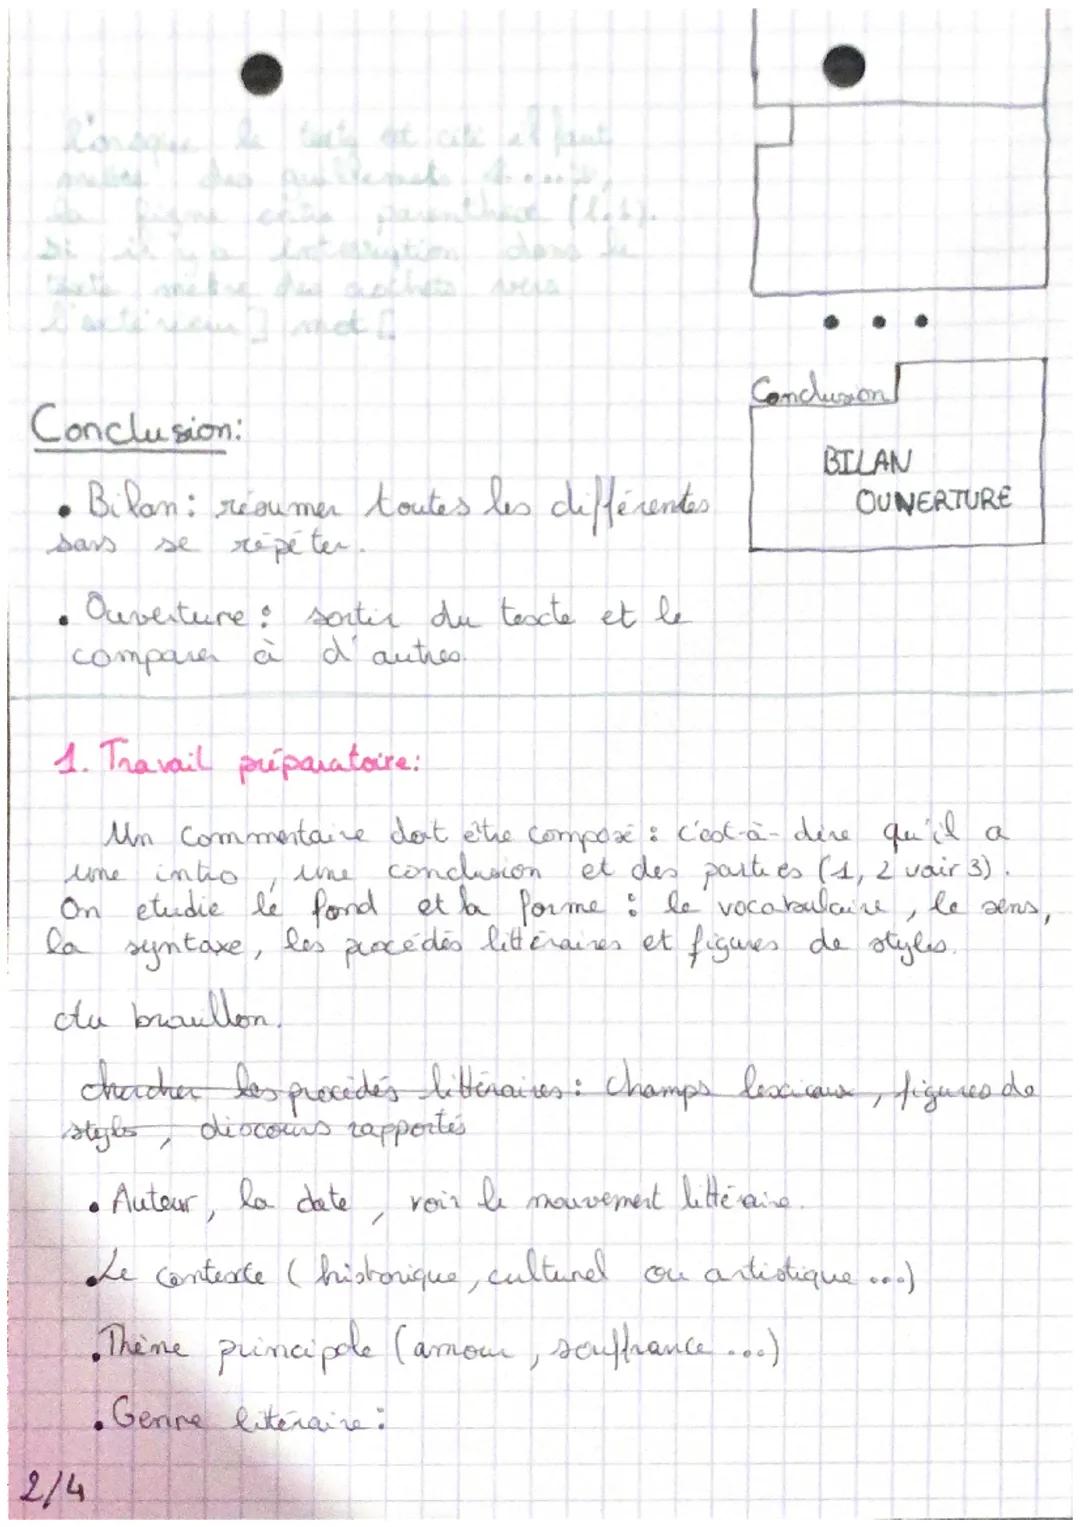 Lorsque le texte est cité il faut
mettre des guillemets «....»,
la ligne entre parenthèse (l.1).
Si il y a interruption dans le
texte mettre des crochets vers
l'extérieur ] mot [
Conclusion:
• Bilan: résumer toutes les différentes
sans se répéter.
• Ouverture: sortir du texte et le
comparer à d'autres.
Conclusion
BILAN
OUVERTURE
1. Travail préparatoire:
Un commentaire doit être composé: c'est-à-dire qu'il a
une intro, une conclusion et des parties (1, 2 voir 3).
On etudie le fond et la forme: le vocabulaire, le sens,
la syntaxe, les procédés littéraires et figures de styles.
du brouillon.
chercher les procédés littéraires: Champs lexicaux, figures de
styles, discours rapportés
• Auteur, la date, voir le mouvement littéraire.
• Le contexte (historique, culturel ou artistique...)
• Thème principale (amour, souffrance...)
• Genre litéraire:
2/4